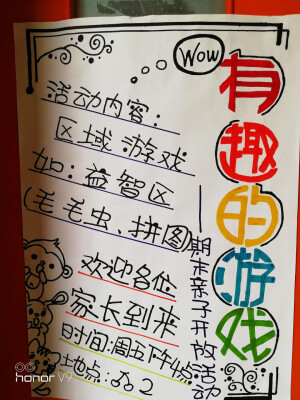 Wow
有趣的游戏
——期末亲子开放活动
活动内容：
区域游戏
如：益智区
(毛毛虫、拼图)
欢迎各位
家长到来
时间：周五下午4点
地点：
2
honor V9